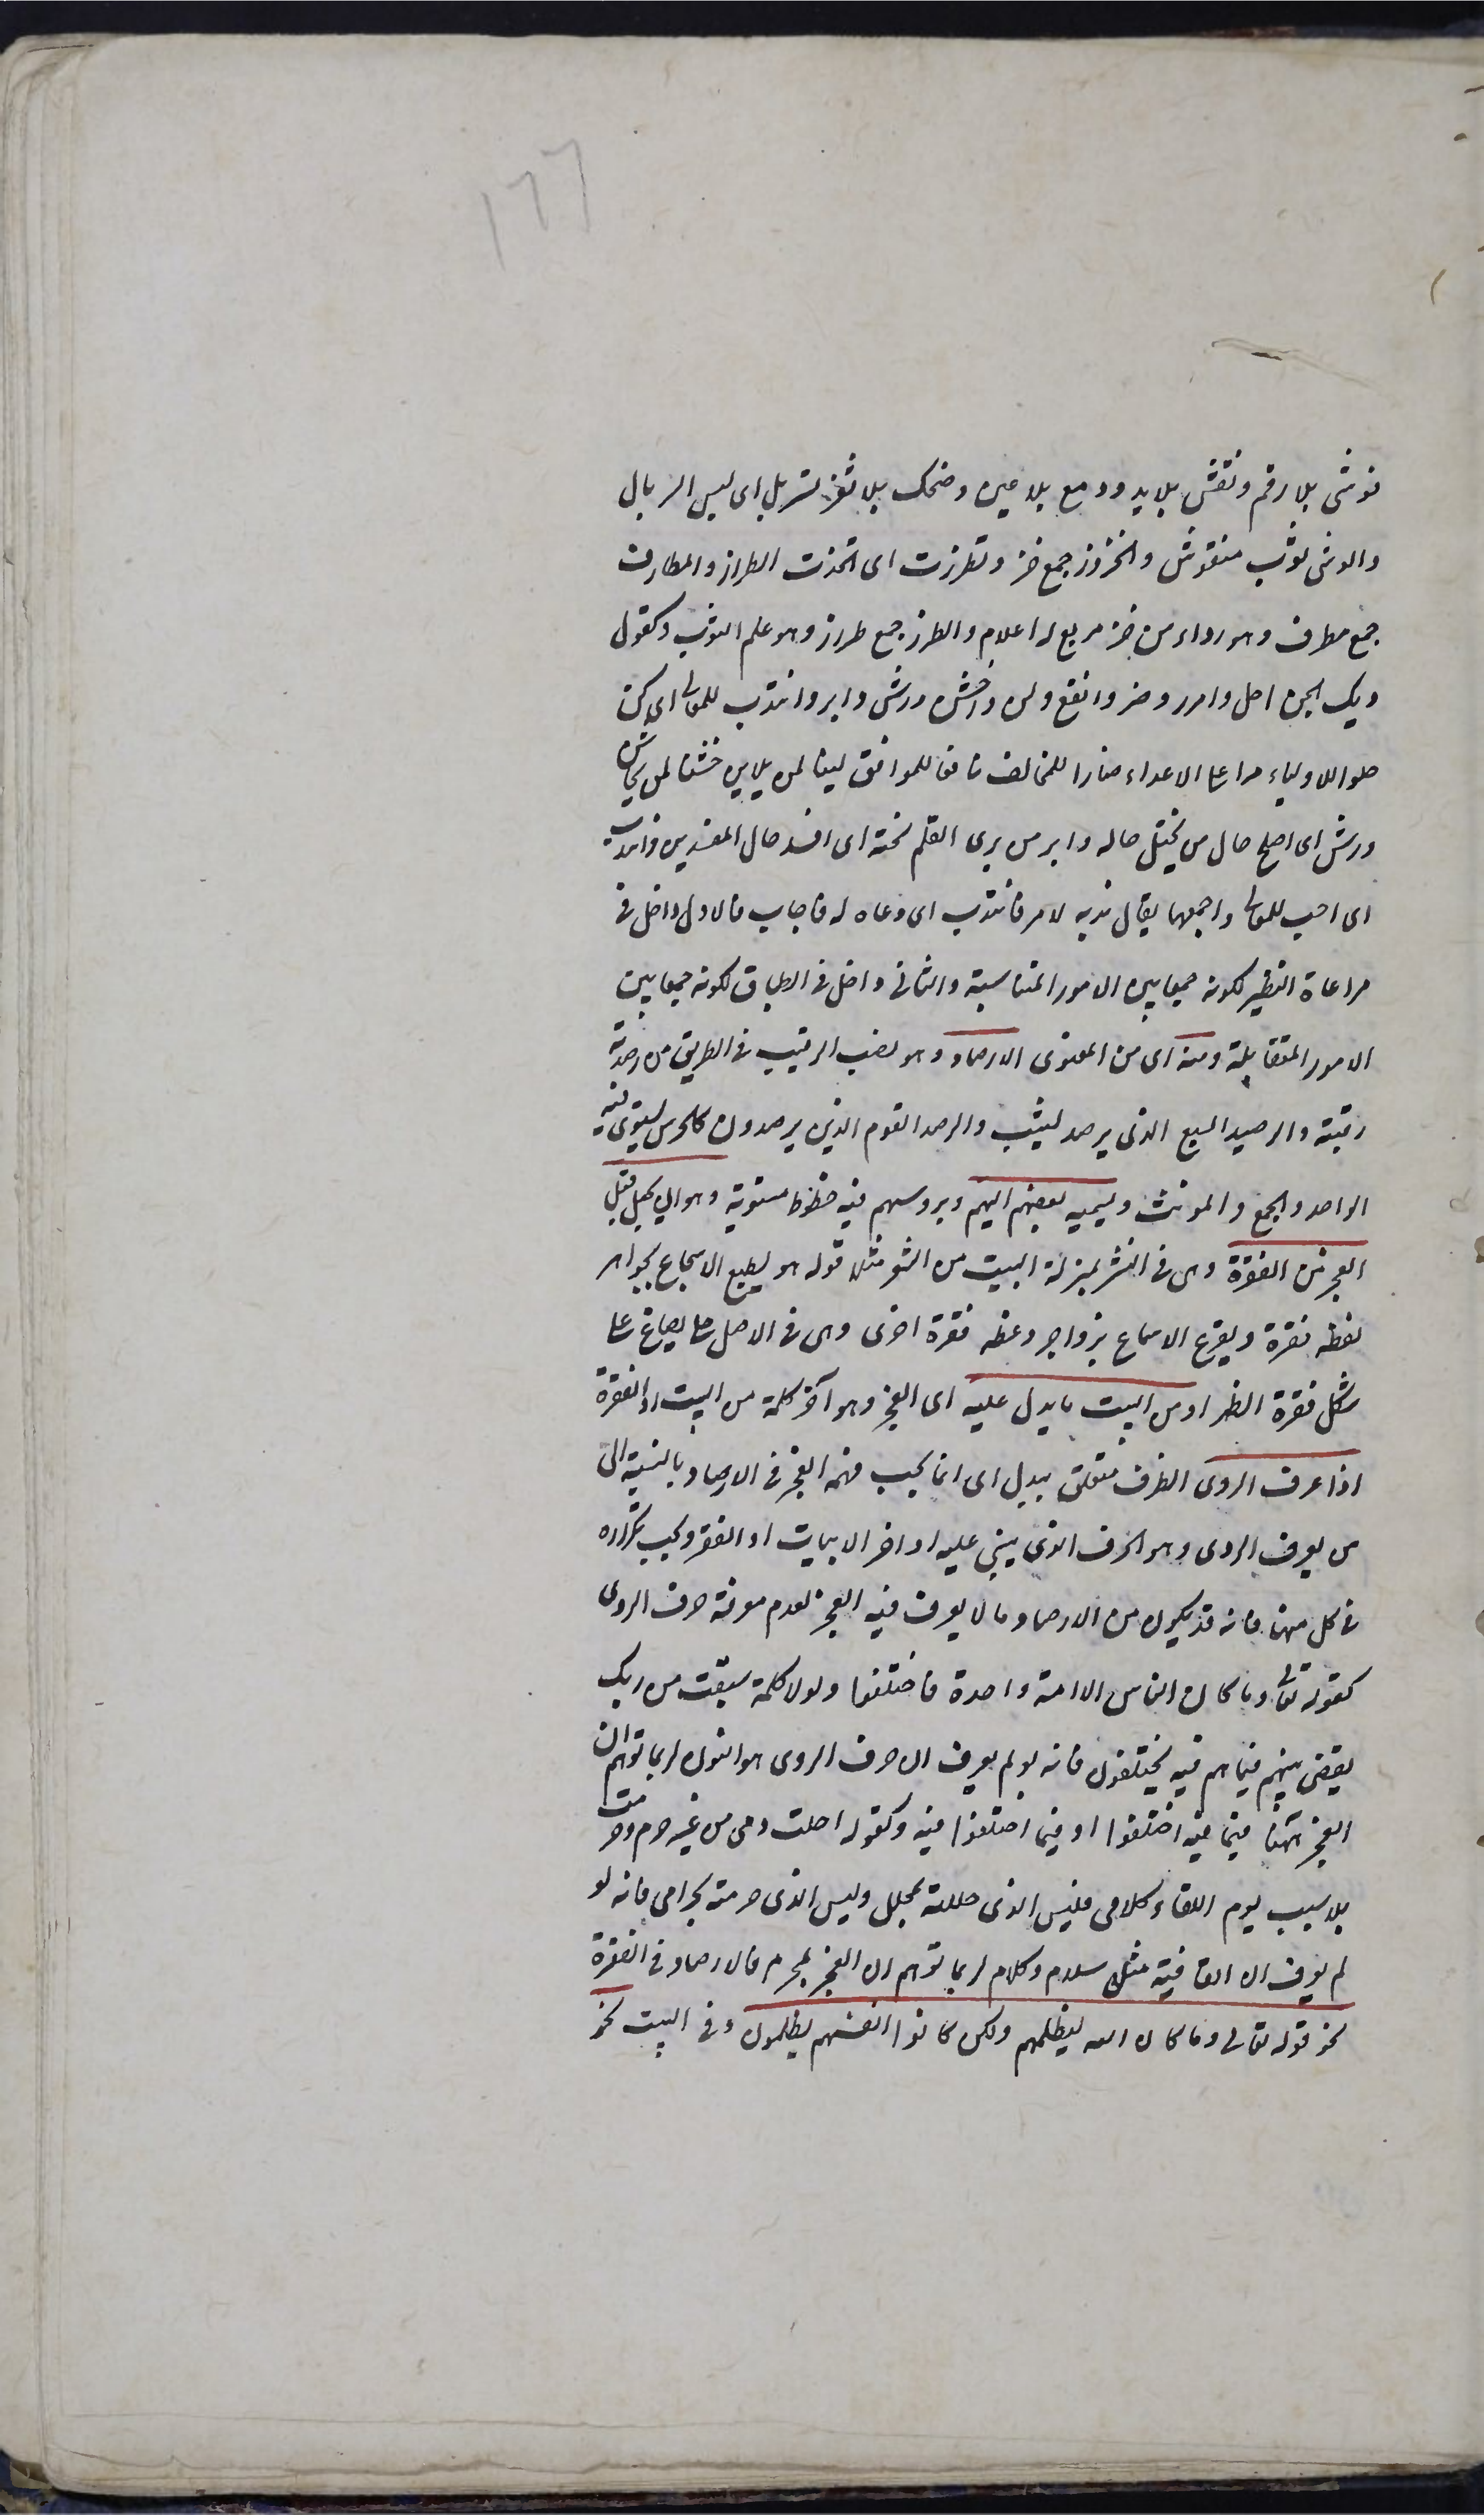 ١٦٦
فوشى بلا رقم ونقش بلا يد ودمع بلا عين وضحك بلا ثغر تسربل اى لبس السربال
والوشى ثوب منقوش والخزوز جمع خز وتطرزت اى اتخذت الطراز والمطارف
جمع مطرف وهو رداء من خز مربع له اعلام والطرز جمع طراز وهو علم الثوب وكقول
ديك الجن احل وامرر وضر وانفع ولن واخشن ورش وابر وانتدب للمعالى اى كن
حلوا للاولياء مرا على الاعداء ضارا للمخالف نافعا للموافق لينا لمن يلاين خشنا لمن يخاشن
ورش اى اصلح حال من يختل حاله وابر من برى القلم نحته اى افسد حال المفسدين وانتدب
اى اجب للمعالى واجمعها يقال ندبه لامر فانتدب اى دعاه له فاجاب فالاول داخل فى
مراعاة النظير لكونه جمعا بين الامور المتناسبة والثانى داخل فى الطباق لكونه جمعا بين
الامور المتقابلة ومنه اى من المعنوى الارصاد وهو نصب الرقيب فى الطريق من رصدته
رقبته والرصيد السبع الذى يرصد ليثب والرصد القوم الذين يرصدون كالحرس يستوى فيه
الواحد والجمع والمونث ويسميه بعضهم التسهيم وبرد مسهم فيه خطوط مستوية وهو ان يجعل قبل
العجز من الفقرة وهى فى النثر بمنزلة البيت من الشعر مثلا قوله هو يطبع الاسجاع بجواهر
لفظه فقرة ويقرع الاسماع بزواجر وعظه فقرة اخرى وهى فى الاصل حلى يصاغ على
شكل فقرة الظهر او من البيت ما يدل عليه اى العجز وهو آخر كلمة من البيت او الفقرة
اذا عرف الروى الظرف متعلق بيدل اى انما يجب فهم العجز فى الارصاد بالنسبة الى
من يعرف الروى وهو الحرف الذى يبنى عليه اواخر الابيات او الفقر ويجب تكراره
فى كل منها فانه قد يكون من الارصاد ما لا يعرف فيه العجز لعدم معرفة حرف الروى
كقوله تعالى وما كان الناس الا امة واحدة فاختلفوا ولولا كلمة سبقت من ربك
لقضى بينهم فيما هم فيه يختلفون فانه لو لم يعرف ان حرف الروى هو النون لربما توهم ان
العجز ههنا فيما فيه اختلفوا او فيما اختلفوا فيه وكقوله احلت دمى من غير جرم وحرمت
بلا سبب يوم اللقاء كلامى فليس الذى حللته بمحلل وليس الذى حرمته بحرامى فانه لو
لم يعرف ان القافية مثل سلام وكلام لربما توهم ان العجز بمحرم فالارصاد فى الفقرة
نحو قوله تعالى وما كان الله ليظلمهم ولكن كانوا انفسهم يظلمون وفى البيت نحو